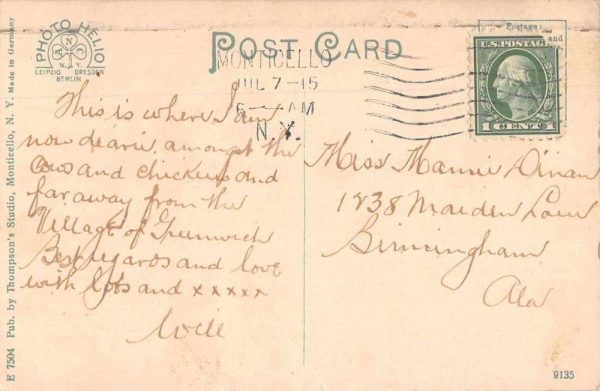 E 7504 Pub. by Thompson's Studio, Monticello, N. Y. Made in Germany
PHOTO HELIO
A N C
N.Y.
LEIPZIG DRESDEN
BERLIN
POST CARD
MONTICELLO
JUL 7-15
6 - AM
N.Y.
Postage:
and
U.S. POSTAGE
1 CENT 1
This is where I am
now dearie, amongst the
cows and chickens and
far away from the
Village of Greenwich
Best regards and love
with lots and xxxxx
Will
Miss Mamie Dinan
1238 Maiden Lane
Birmingham
Ala
9135